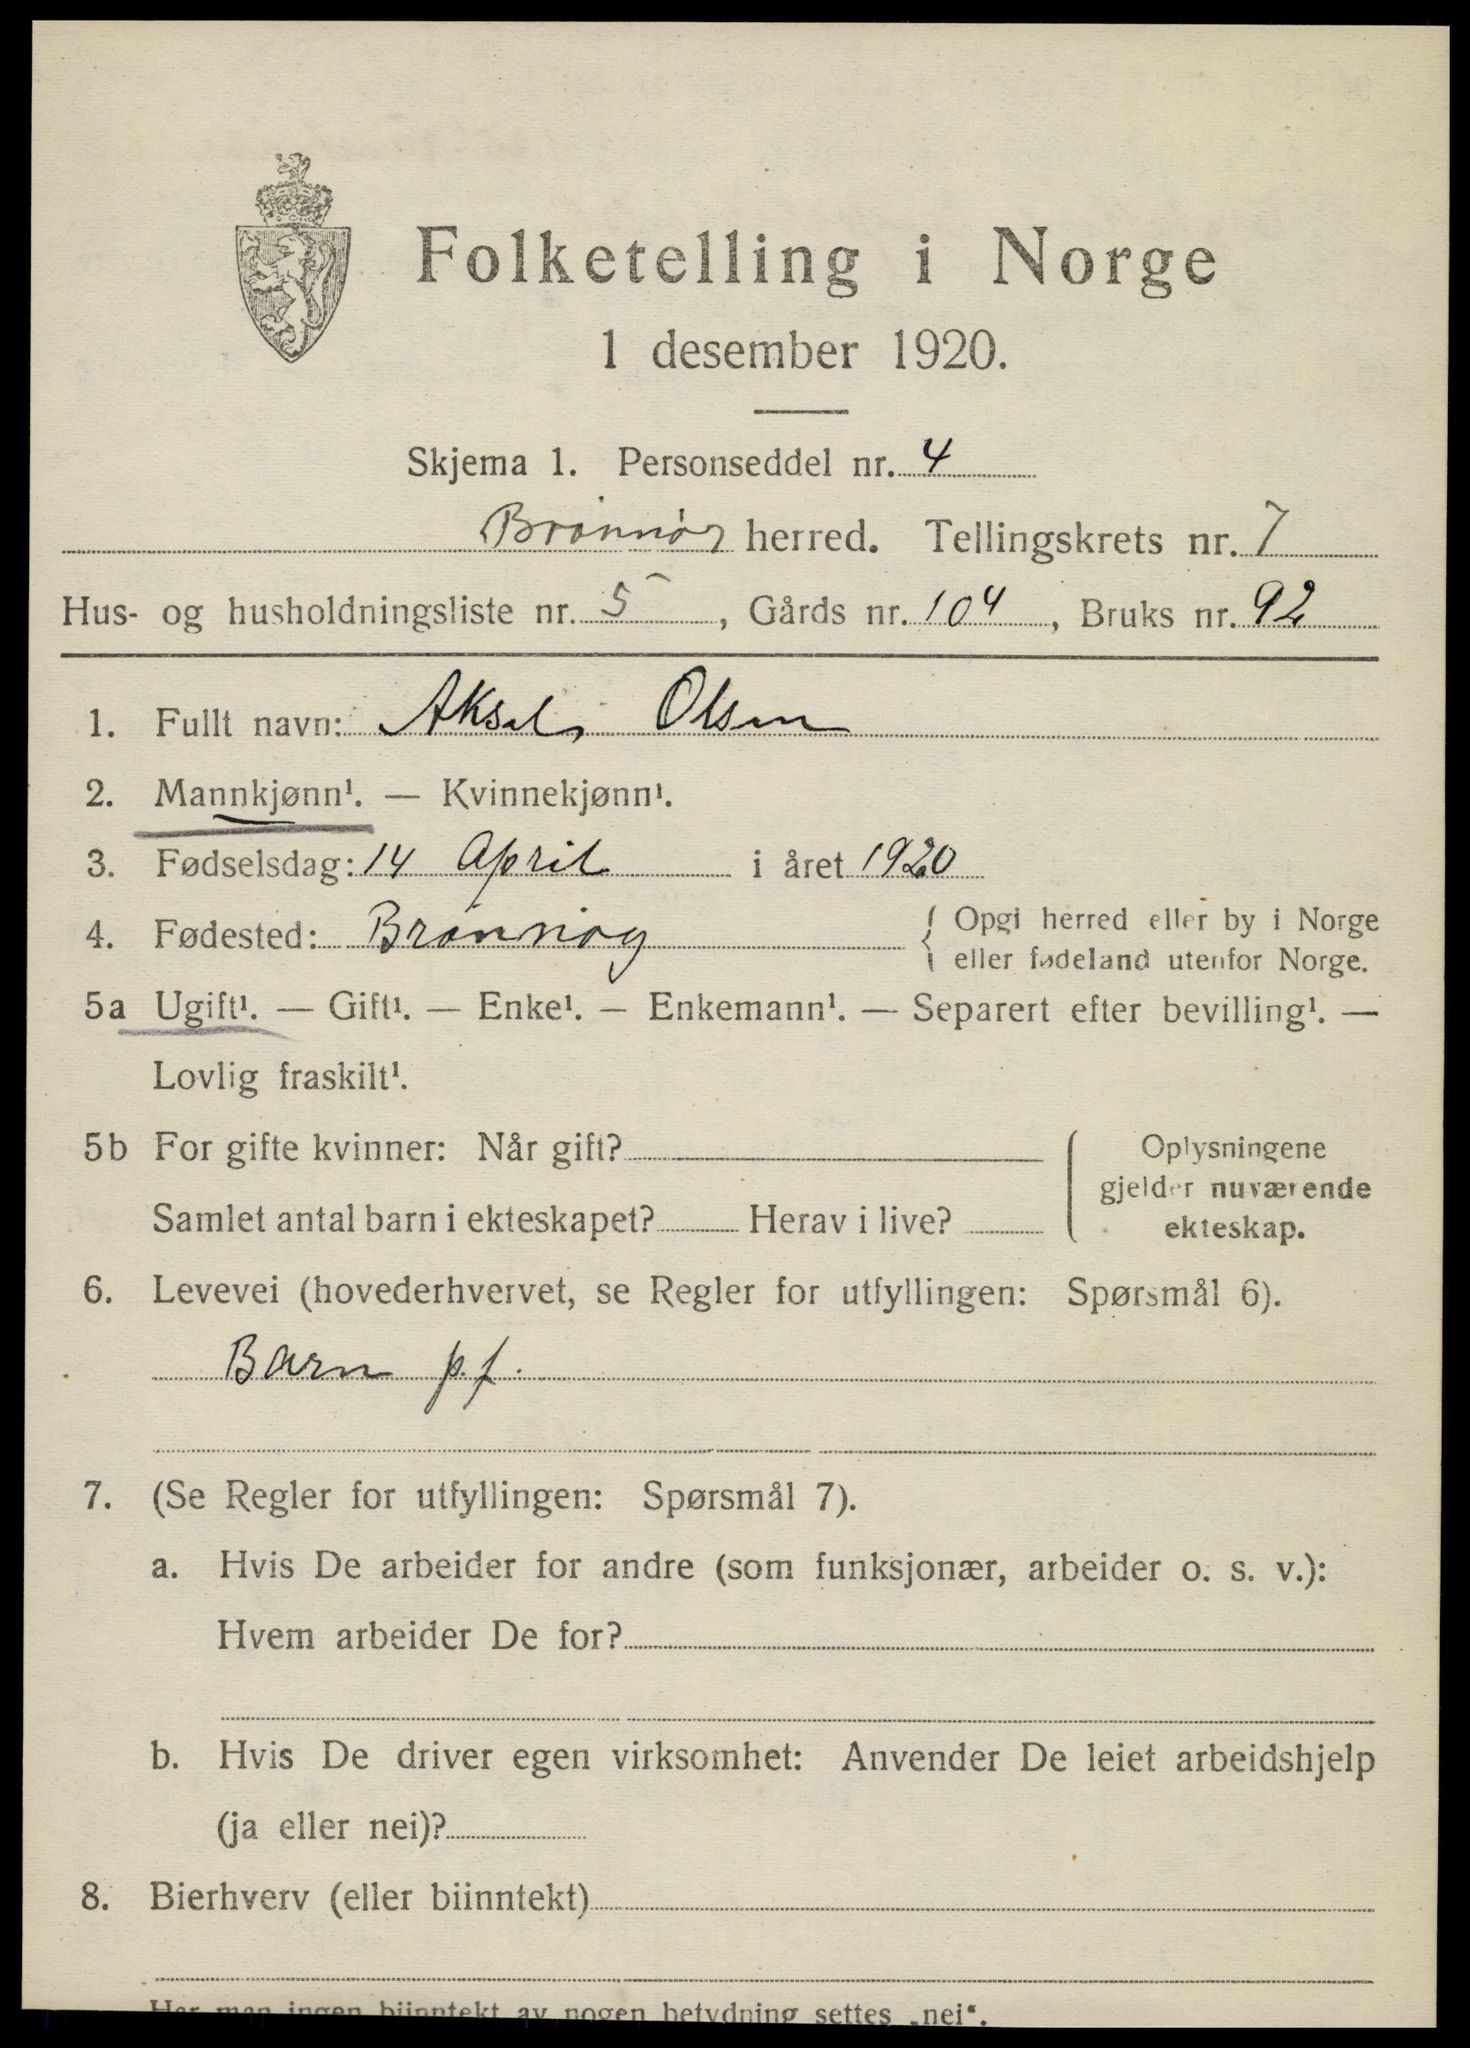 Folketelling i Norge
1 desember 1920.
Skjema 1. Personseddel nr. 4
Brønnøy herred. Tellingskrets nr. 7
Hus- og husholdningsliste nr. 5, Gårds nr. 104, Bruks nr. 92
1. Fullt navn: Aksel Olsen
2. Mannkjønn¹. — Kvinnekjønn¹.
3. Fødselsdag: 14 April i året 1920
4. Fødested: Brønnøy { Opgi herred eller by i Norge
eller fødeland utenfor Norge.
5a Ugift¹. — Gift¹. — Enke¹. — Enkemann¹. — Separert efter bevilling¹. —
Lovlig fraskilt¹.
5b For gifte kvinner: Når gift?
Samlet antal barn i ekteskapet? Herav i live?
Oplysningene
gjelder nuværende
ekteskap.
6. Levevei (hovederhvervet, se Regler for utfyllingen: Spørsmål 6).
Barn p. f.
7. (Se Regler for utfyllingen: Spørsmål 7).
a. Hvis De arbeider for andre (som funksjonær, arbeider o. s. v.):
Hvem arbeider De for?
b. Hvis De driver egen virksomhet: Anvender De leiet arbeidshjelp
(ja eller nei)?
8. Bierhverv (eller biinntekt)
Har man ingen biinntekt av nogen betydning settes „nei“.